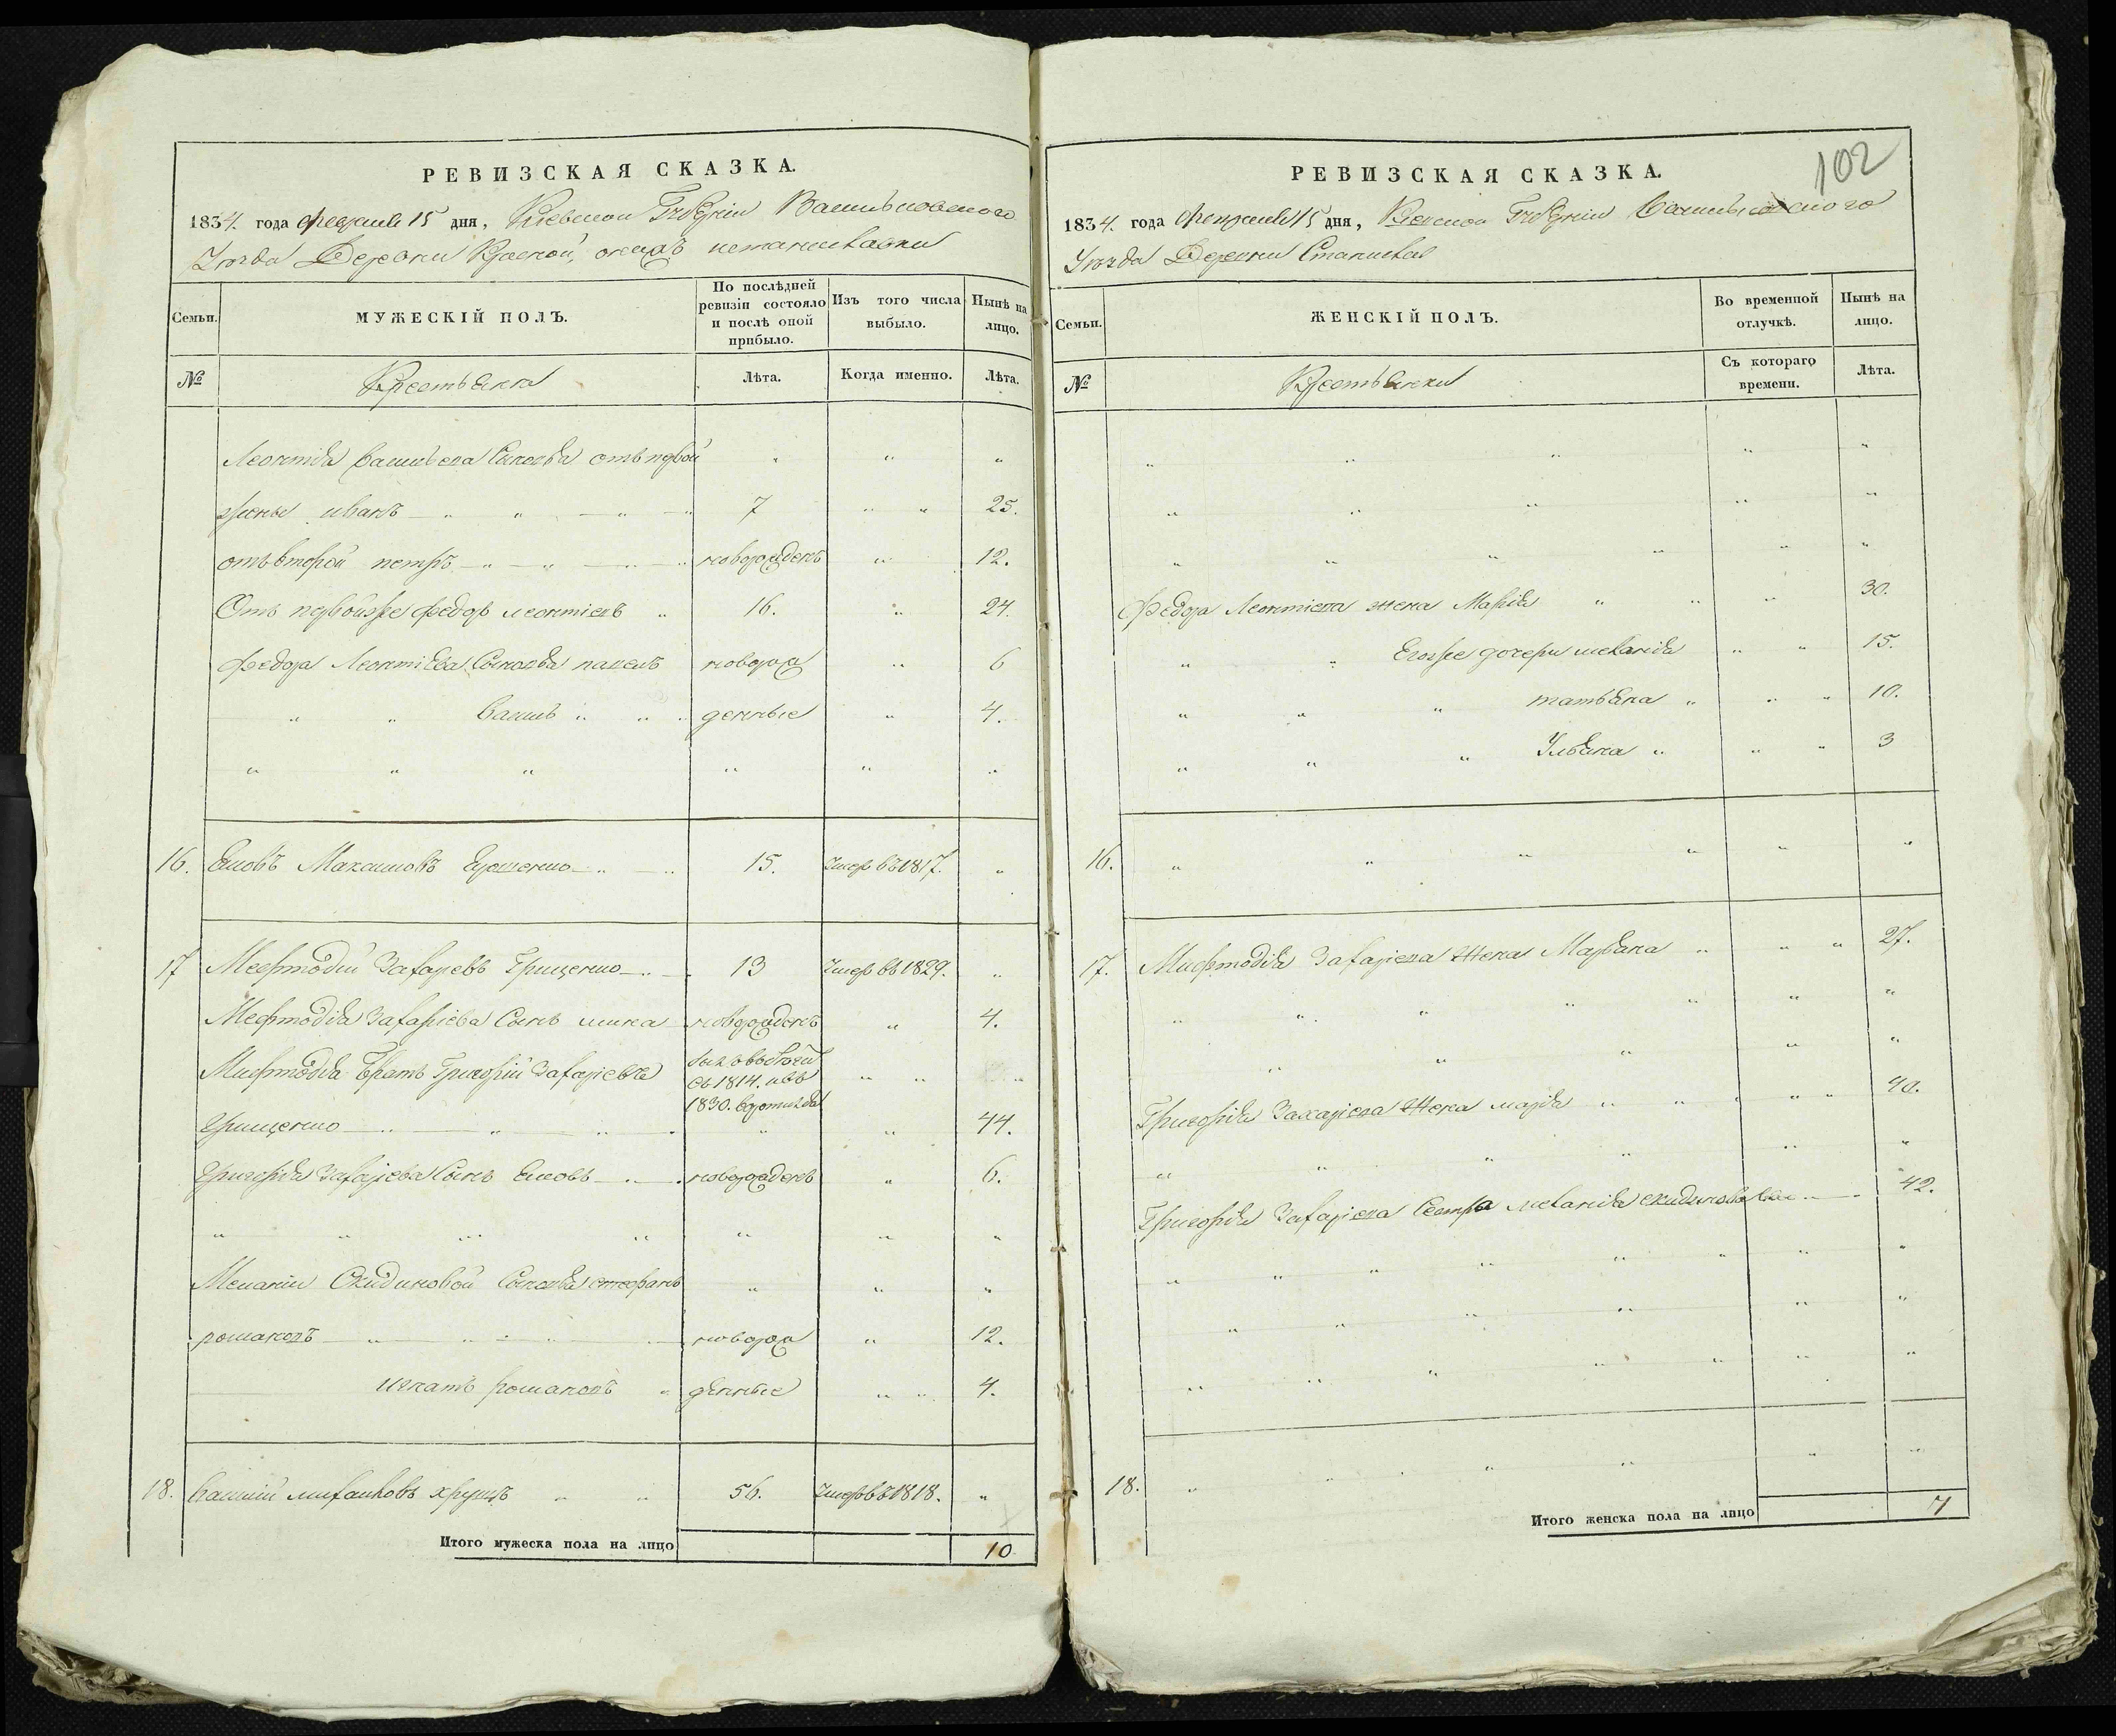 РЕВИЗСКАЯ СКАЗКА.
1834. года февраля 15 дня, Киевской Губерніи Васильковского
Уезда Деревни
Семьи.
МУЖЕСКІЙ ПОЛЪ.
По послѣдней ревизіи состояло и послѣ оной прибыло.
Изъ того числа выбыло.
Нынѣ на лицо.
№
Крестьяна
Лѣта.
Когда именно.
Лѣта.
Леонтія Васильева Сыновья отъ первой
жены иванъ 7 25.
отъ второй петръ новорожденъ 12.
Отъ первой же федоръ леонтіевъ 16. 24.
Федора Леонтіева Сыновья павелъ новорож 6
Василь денные 4.
16. Яковъ Максимовъ 15. Умеръ въ 1817.
17 Мефтодій Захарьевъ Грищенко 13 Умеръ въ 1829.
Мефтодія Захаріева Сынъ мина новорожденъ 4.
Мифтодія Братъ Григорій Захарьевъ былъ въ бегах
съ 1814. и въ
1830.
Грищенко 44.
Григорія Захарьева Сынъ Яковъ новорожденъ 6.
Меланіи Скидановой Сыновья стефанъ
романовъ новорож 12.
игнатъ романовъ денные 4.
18. Василій михайловъ 56. Умеръ въ 1818.
Итого мужеска пола на лицо 10
102
РЕВИЗСКАЯ СКАЗКА.
1834. года Февраля 15 дня, Киевской Губерніи Васильковского
Уезда Деревни
Семьи.
ЖЕНСКІЙ ПОЛЪ.
Во временной отлучкѣ.
Нынѣ на лицо.
№
Крестьянки
Съ котораго времени.
Лѣта.
Федора Леонтіева жена Марія 30.
Его же дочери меланія 15.
татьяна 10.
Ульяна 3
16.
17. Мифтодія Захаріева Жена Марьяна 27.
Григорія Захаріева Жена марія 40.
Григорія Захаріева Сестра меланія 42.
18.
Итого женска пола на лицо 7